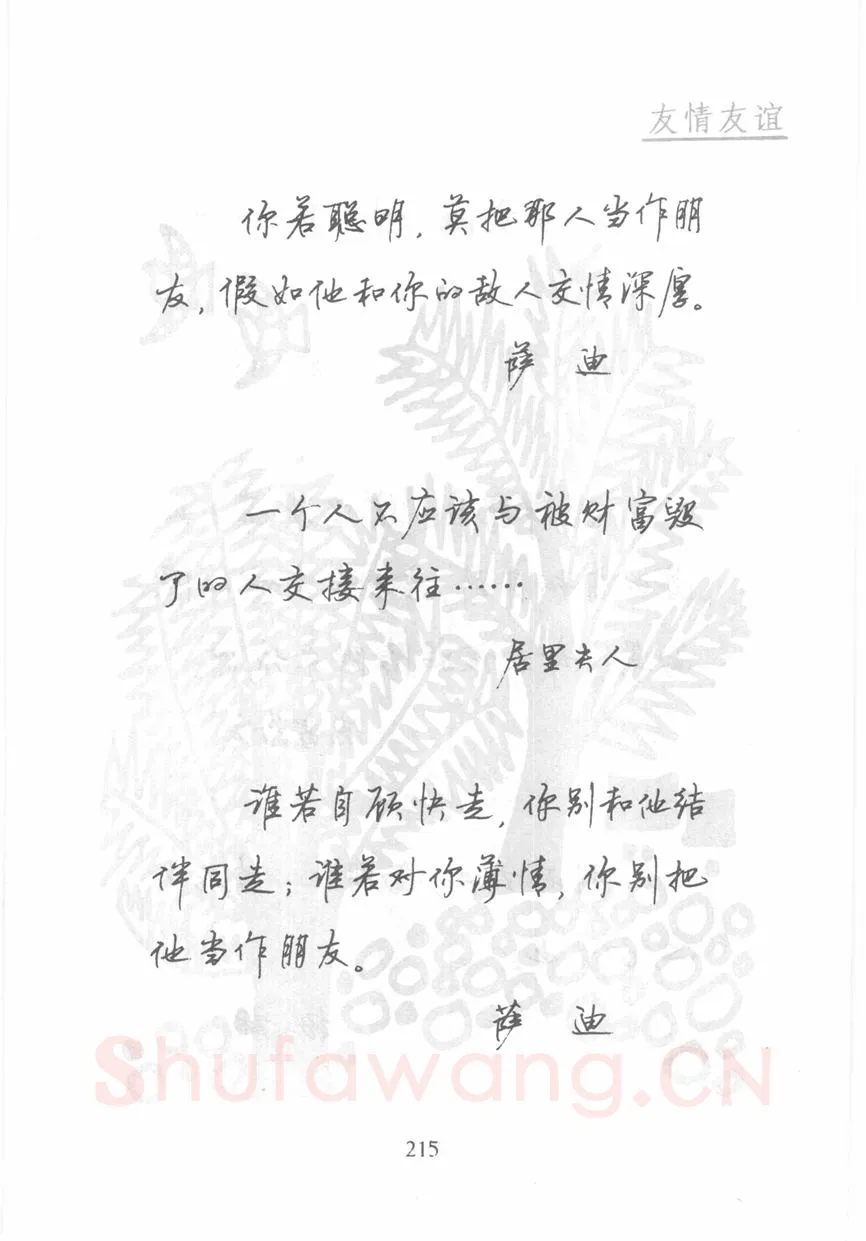 友情友谊
你若聪明，莫把那人当作朋
友，假如他和你的敌人交情深厚。
萨 迪
一个人不应该与被财富毁
了的人交接来往……
居里夫人
谁若自顾快走，你别和他结
伴同走；谁若对你薄情，你别把
他当作朋友。
萨 迪
Shufawang.CN
215